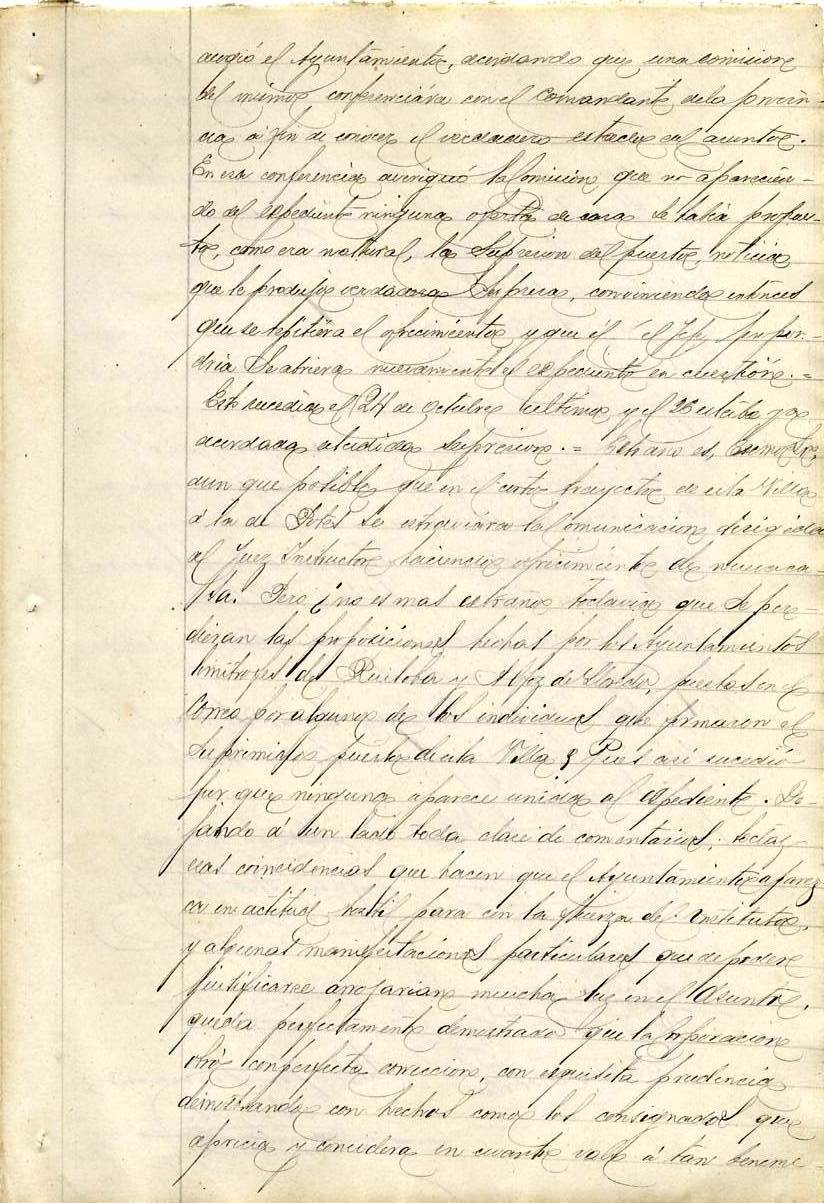 acogió el Ayuntamiento, acordando que una comision
del mismo conferenciára con el Comandante de la provin-
cia á fin de conocer el verdadero estado del asunto.
En esa conferencia averiguó la Comision que no aparecien-
do del espediente ninguna oferta de casa se habia propues-
to, como era natural, la supresion del puesto, noticia
que le produjo verdadera sorpresa, conviniendo entónces
que se repitiera el ofrecimiento y que él el Jefe propon-
dria se abriera nuevamente el espediente en cuestión. =
Esto sucedia el 24 de Octubre último y el 25 estaba ya
acordada aludida supresion. = Estraño es, Exmo Sr,
aun que posible que en el corto trayecto de esta Villa
á la de Potes se estraviára la comunicacion dirigida
al Juez Instructor haciendo ofrecimiento de nueva ca-
sa. Pero ¿no es mas estraño todavia que se per-
dieran las proposiciones hechas por los Ayuntamientos
limítrofes de Ruiloba y Alfoz de Lloredo, puestas en el
Correo por algunos de los individuos que formaron el
suprimido puesto de esta Villa? Pues asi sucedió
por que ninguna aparece unida al espediente. De-
jando á un lado toda clase de comentarios,
esas coincidencias que hacen que el Ayuntamiento aparez
ca en actitud hostil para con la fuerza del Instituto,
y algunas manifestaciones particulares que de poder
justificarse arrojarian mucha luz en el asunto,
queda perfectamente demostrado que la Corporacion
obró con perfecta correccion, con esquisita prudencia
demostrando con hechos como los consignados que
aprecia y considera en cuanto vale á tan beneme-